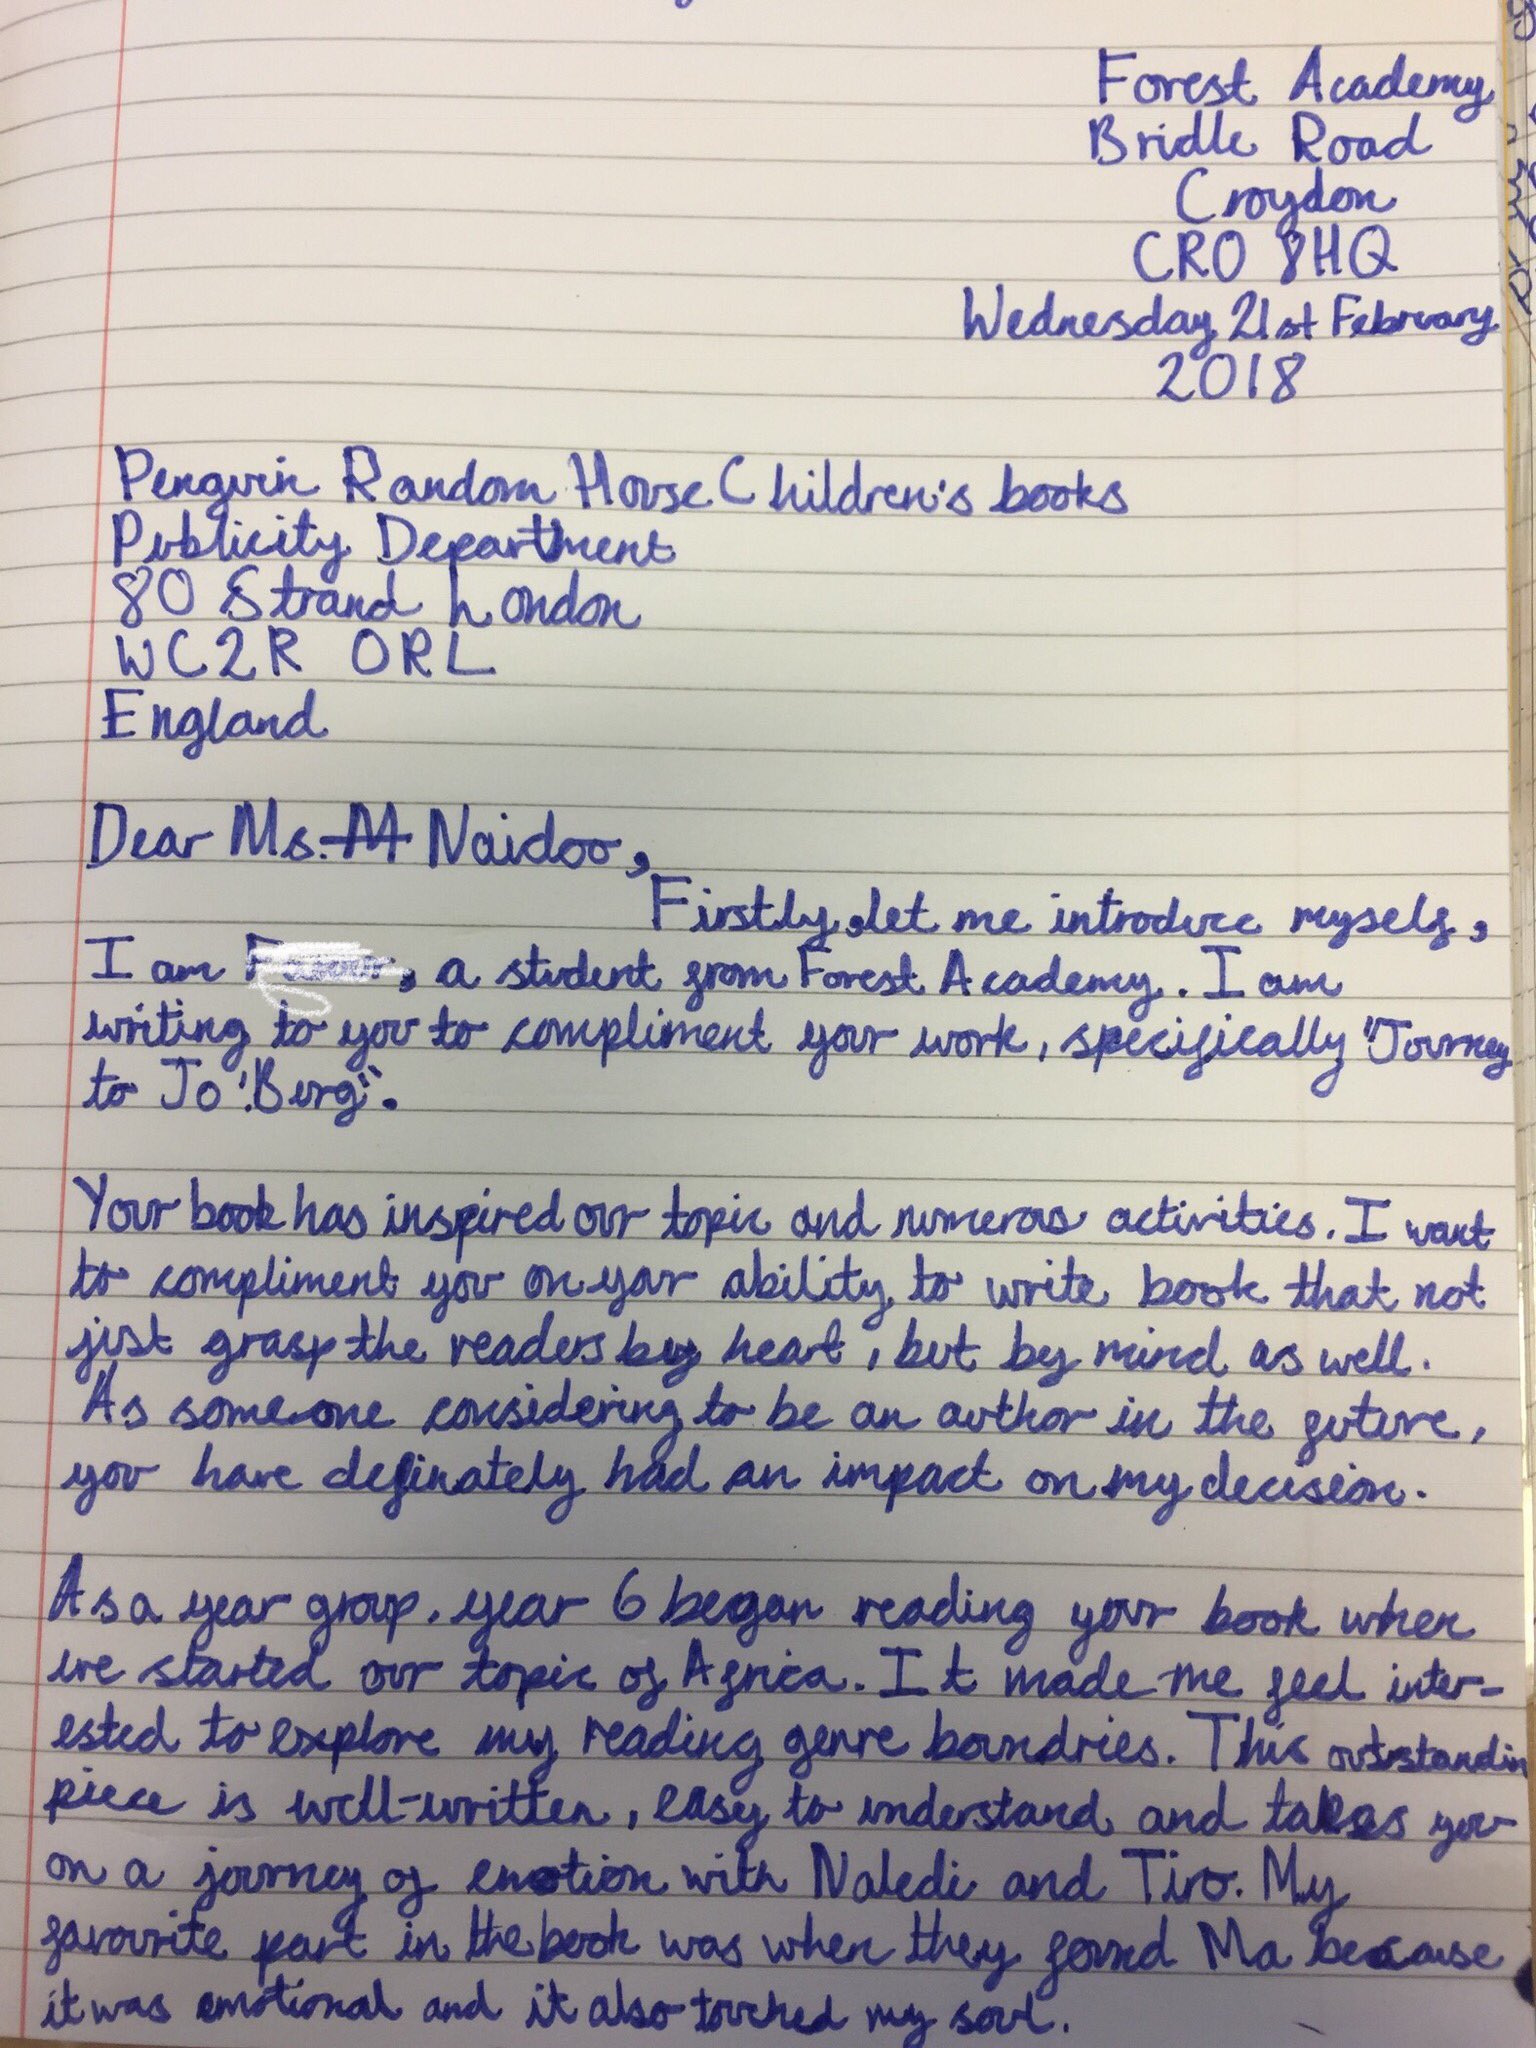 Forest Academy
Bridle Road
Croydon
CR0 8HQ
Wednesday 21st February
2018
Penguin Random House Children's books
Publicity Department
80 Strand London
WC2R 0RL
England
Dear Ms. M Naidoo,
Firstly, let me introduce myself,
I am , a student from Forest Academy. I am
writing to you to compliment your work, specifically "Journey
to Jo'Berg".
Your book has inspired our topic and numerous activities. I want
to compliment you on your ability to write book that not
just grasp the readers by heart, but by mind as well.
As someone considering to be an author in the future,
you have definately had an impact on my decision.
As a year group, year 6 began reading your book when
we started our topic of Africa. It made me feel inter-
ested to explore my reading genre boundries. This outstandin
piece is well-written, easy to understand and takes you
on a journey of emotion with Naledi and Tiro. My
favourite part in the book was when they found Ma because
it was emotional and it also touched my soul.